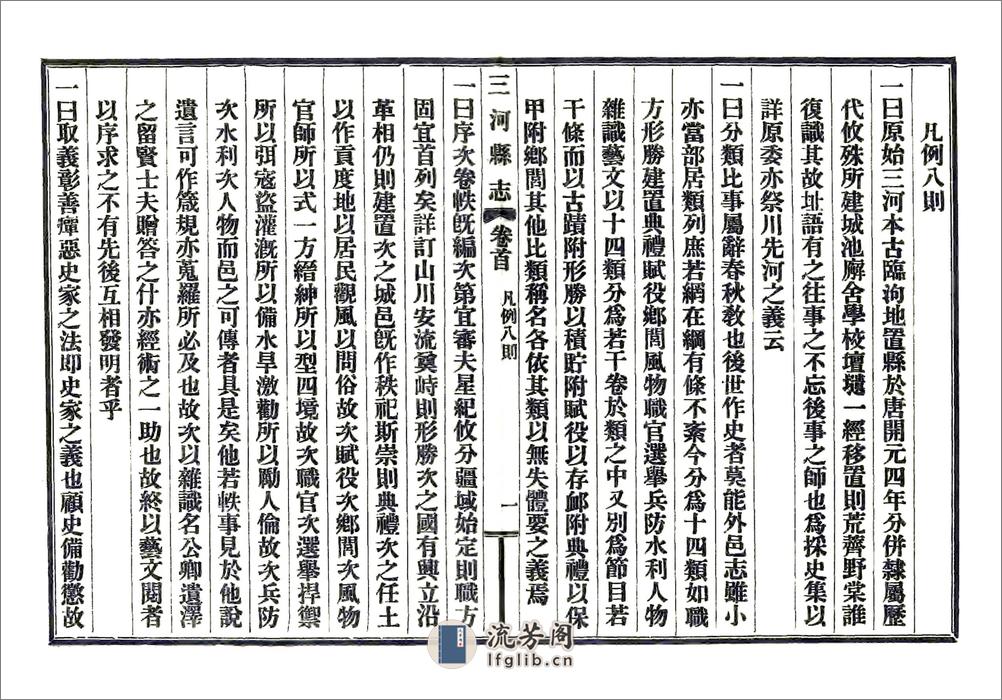 凡例八則
一曰原始三河本古臨泃地置縣於唐開元四年分併隸屬歷
代攸殊所建城池廨舍學校壇壝一經移置則荒薺野棠誰
復識其故址語有之往事之不忘後事之師也爲採史集以
詳原委亦祭川先河之義云
一曰分類比事屬辭春秋敎也後世作史者莫能外邑志雖小
亦當部居類列庶若網在綱有條不紊今分爲十四類如職
方形勝建置典禮賦役鄕閭風物職官選舉兵防水利人物
雜識藝文以十四類分爲若干卷於類之中又別爲節目若
干條而以古蹟附形勝以積貯附賦役以存卹附典禮以保
甲附鄕閭其他比類稱名各依其類以無失體要之義焉
三河縣志 卷首 凡例八則 一
一曰序次卷帙旣編次第宜審夫星紀攸分疆域始定則職方
固宜首列矣詳訂山川安流奠峙則形勝次之國有興立沿
革相仍則建置次之城邑旣作秩祀斯崇則典禮次之任土
以作貢度地以居民觀風以問俗故次賦役次鄕閭次風物
官師所以式一方縉紳所以型四境故次職官次選舉捍禦
所以弭寇盜灌漑所以備水旱激勸所以勵人倫故次兵防
次水利次人物而邑之可傳者具是矣他若軼事見於他說
遺言可作箴規亦蒐羅所必及也故次以雜識名公卿遺澤
之留賢士夫贈答之什亦經術之一助也故終以藝文閱者
以序求之不有先後互相發明者乎
一曰取義彰善癉惡史家之法即史家之義也顧史備勸懲故
流芳閣
lfglib.cn